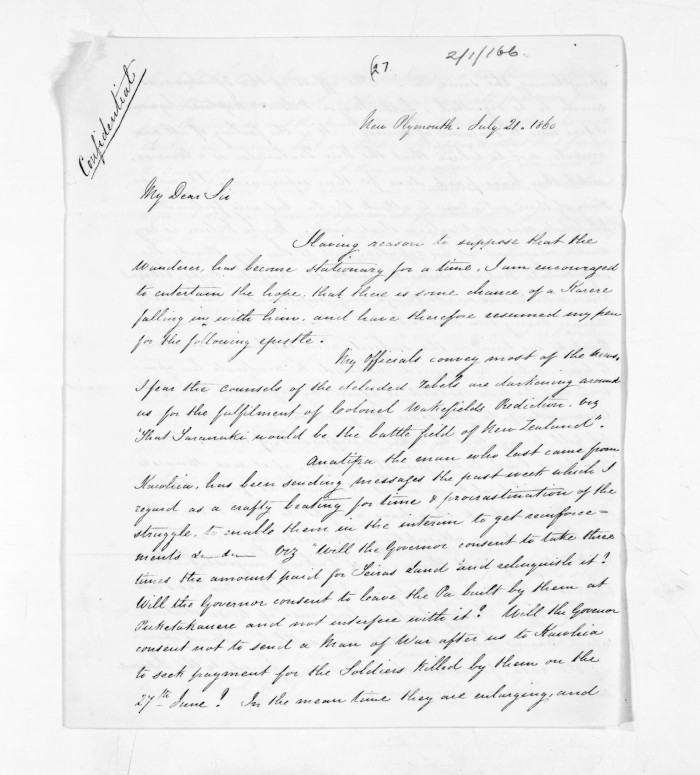 2/1/166.
(27
Confidential
New Plymouth. July 21. 1860
My Dear Sir
Having reason to suppose that the
Wanderer, has become stationary for a time, I am encouraged
to entertain the hope, that there is some chance of a Karere
falling in with him, and have therefore resumed my pen
for the following epistle.
My Officials convey most of the news,
I fear the counsels of the deluded rebels are darkening around
us for the fulfilment of Colonel Wakefields Prediction. viz
"That Taranaki would be the battle field of New Zealand".
Anatipa the man who last came from
Kawhia, has been sending messages the past week which I
regard as a crafty beating for time & procrastination of the
struggle, to enable them in the interim to get reinforce=
ments viz "Will the Governor consent to take three
times the amount paid for Teiras Land and relinquish it?
Will the Governor consent to leave the Pa built by them at
Puketakauere and not interfere with it? Will the Govenor
consent not to send a Man of War after us to Kawhia
to seek payment for the Soldiers killed by them on the
27th June? In the mean time they are enlarging, and